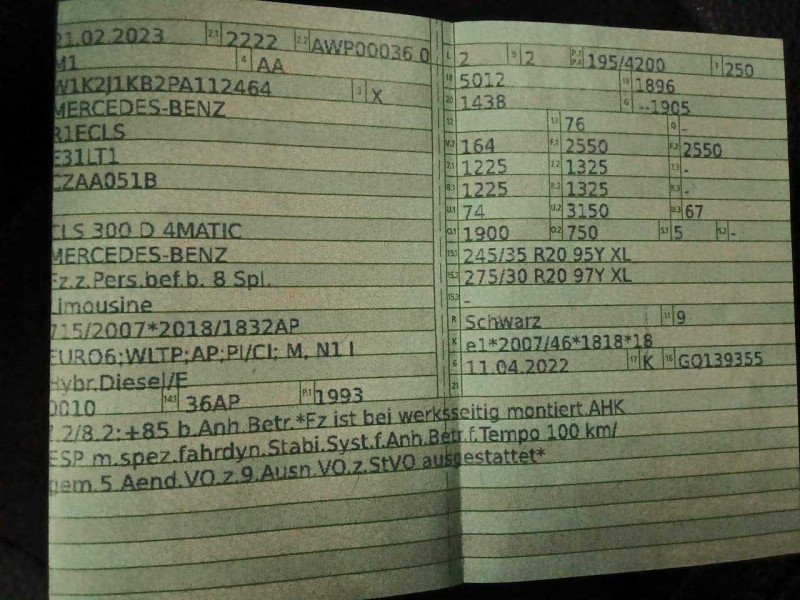 21.02.2023 2.1 2222 2.2 AWP00036 0
M1 4 AA
W1K2J1KB2PA112464 3 X
MERCEDES-BENZ
R1ECLS
F31LT1
CZAA051B
CLS 300 D 4MATIC
MERCEDES-BENZ
Fz.z.Pers.bef.b. 8 Spl.
Limousine
715/2007*2018/1832AP
EURO6;WLTP;AP;PI/CI; M, N1 I
Hybr.Diesel/E
0010 14.1 36AP P.1 1993
7.2/8.2:+85 b.Anh.Betr.*Fz ist bei werksseitig montiert.AHK
ESP m.spez.fahrdyn.Stabi.Syst.f.Anh.Betr.f.Tempo 100 km/
gem.5.Aend.VO.z.9.Ausn.VO.z.StVO ausgestattet*
L 2 9 2 P.2 P.4 195/4200 T 250
18 5012 19 1896
20 1438 G --1905
12 13 76 Q -
V.7 164 F.1 2550 F.2 2550
7.1 1225 7.2 1325 7.3 -
8.1 1225 8.2 1325 8.3 -
U.1 74 U.2 3150 U.3 67
O.1 1900 O.2 750 S.1 5 S.2 -
15.1 245/35 R20 95Y XL
15.2 275/30 R20 97Y XL
15.3 -
R Schwarz 11 9
K e1*2007/46*1818*18
6 11.04.2022 17 K 16 GQ139355
21